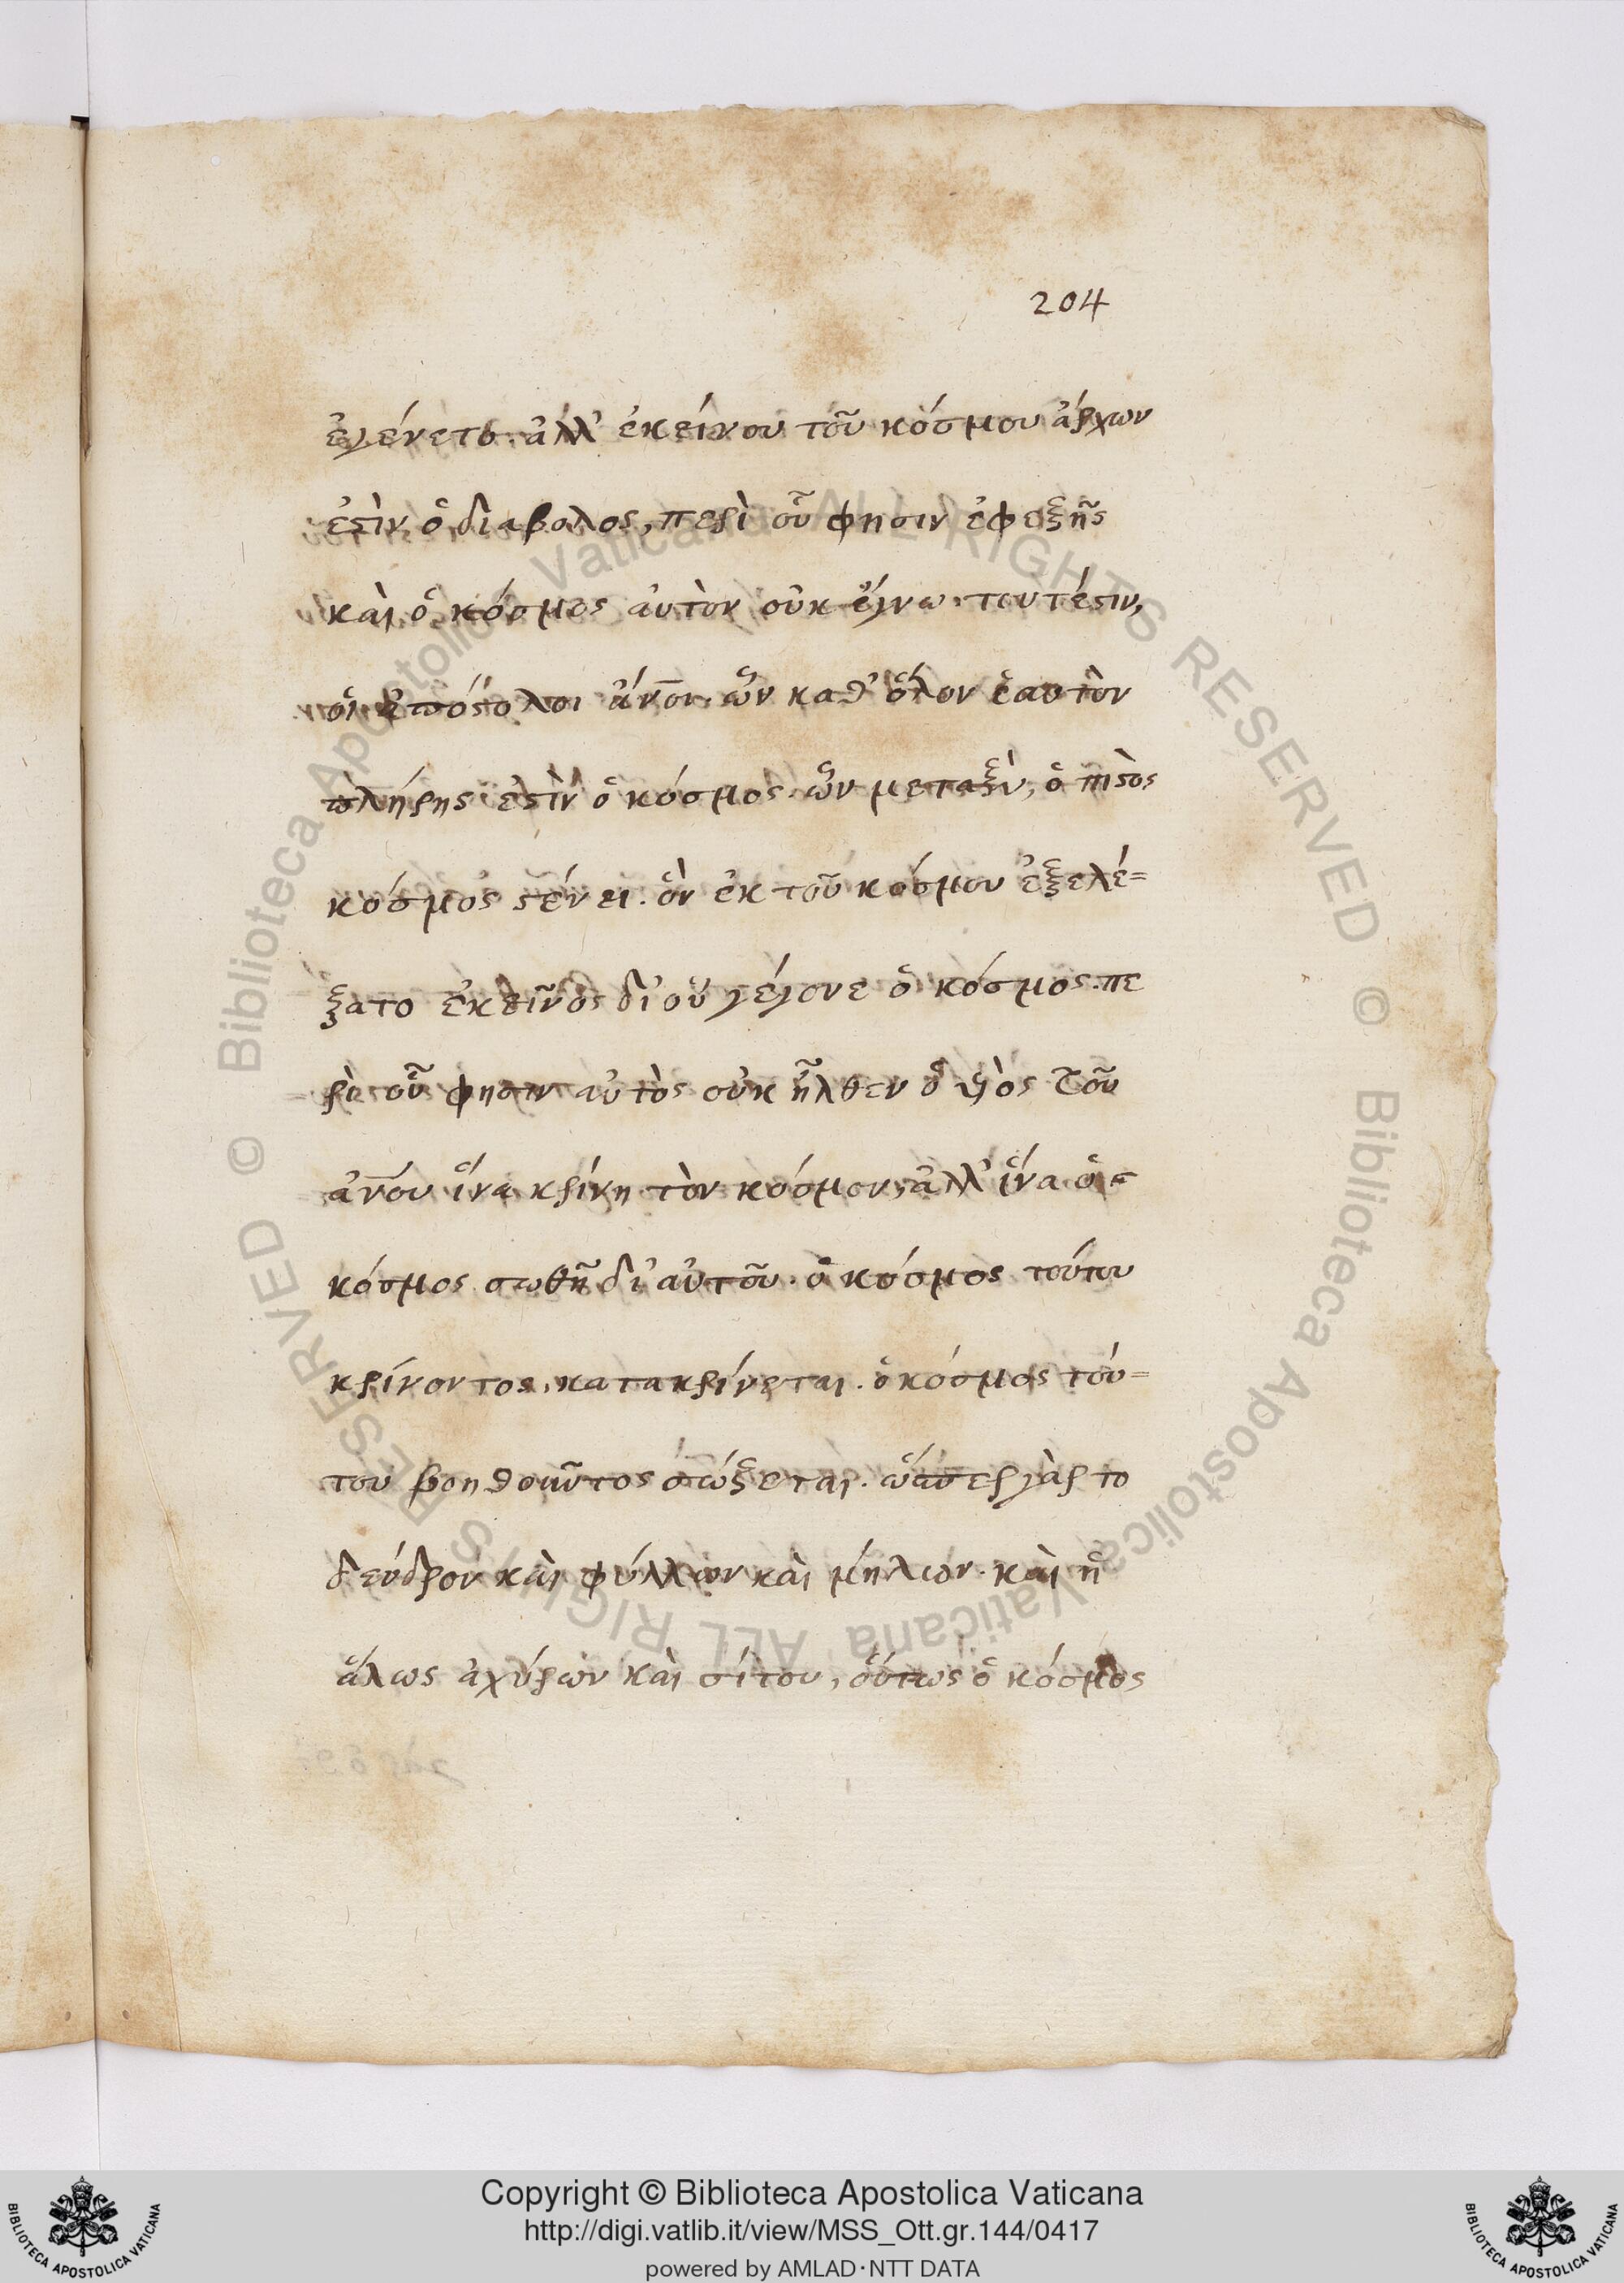 204
ἐγένετο. ἀλλ' ἐκείνου τοῦ κόσμου ἄρχων
ἐϛὶν ὁ διαβολος, περὶ οὗ φησιν ἐφεξῆς
καὶ ὁ κόσμος αὐτὸν οὐκ ἔγνω. τουτέϛιν,
οἱ ἀπόϛολοι ἄν̅οι. ὧν καθ' ὅλον ἑαυτὸν
πλήρης ἐϛὶν ὁ κόσμος. ὧν μεταξὺ, ὁ πιϛὸς
κόσμος ϛένει. ὃν ἐκ τοῦ κόσμου ἐξελέ=
ξατο ἐκεῖνος δι' οὗ γέγονε ὁ κόσμος. πε
ρὶ οὗ φησιν αὐτὸς οὐκ ἦλθεν ὁ ὑιὸς τοῦ
ἀν̅ου ἵνα κρίνη τὸν κόσμον, ἀλλ' ἵνα ὁ=
κόσμος σωθῆ δι' αὐτοῦ. ὁ κόσμος τούτου
κρίνοντος, κατακρίνεται. ὁ κόσμος τού=
του βοηθοῦντος σώξεται. ὥσπερ γὰρ το
δένδρον καὶ φύλλων καὶ μήλων. καὶ ἡ
ἅλως ἀχύρων καὶ σίτου, οὕτως ὁ κόσμος
Copyright © Biblioteca Apostolica Vaticana
http://digi.vatlib.it/view/MSS_Ott.gr.144/0417
powered by AMLAD·NTT DATA
© Biblioteca Apostolica Vaticana ALL RIGHTS RESERVED © Biblioteca Apostolica Vaticana ALL RIGHTS RESERVED
BIBLIOTECA APOSTOLICA VATICANA
BIBLIOTECA APOSTOLICA VATICANA